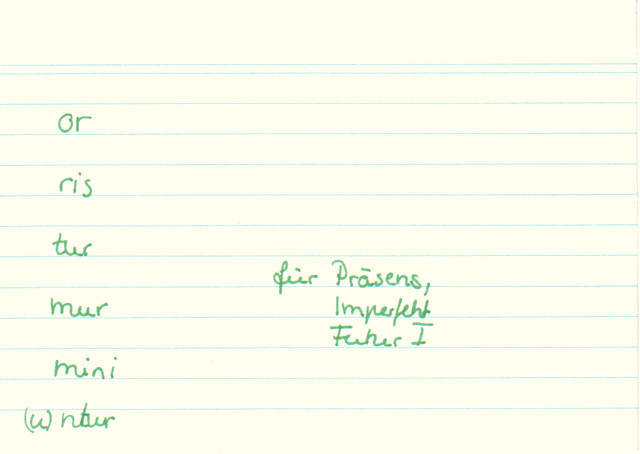 or
ris
tur
für Präsens,
mur
Imperfekt
Futur I
mini
(u)ntur